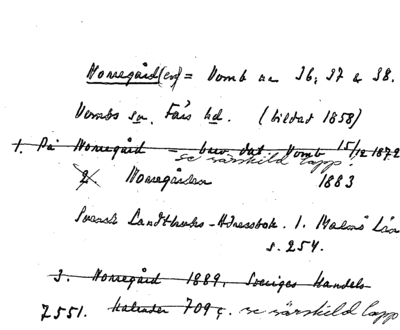 Norregård(en) = Vomb nr 36, 37 & 38.
Vombs sn. Färs hd. (bildat 1858)
1. På Norregård – brev dat. Vomb 15/12 1872
se särskild lapp.
2 Norregården 1883
Svensk Landtbruks-Adressbok. 1. Malmö Län
s. 254.
3. Norregård 1889. Sveriges Handels-
7551. kalender 709 ç. se särskild lapp